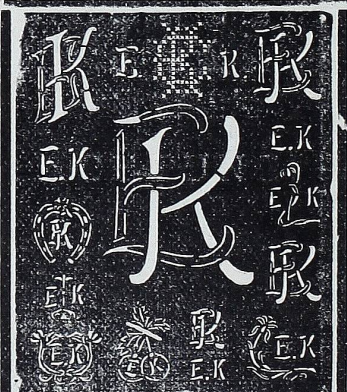 EK
E K K
EK
E.K
E.K
EK
E K
EK
E K
EK
EK
EK
EK
E.K
E.K